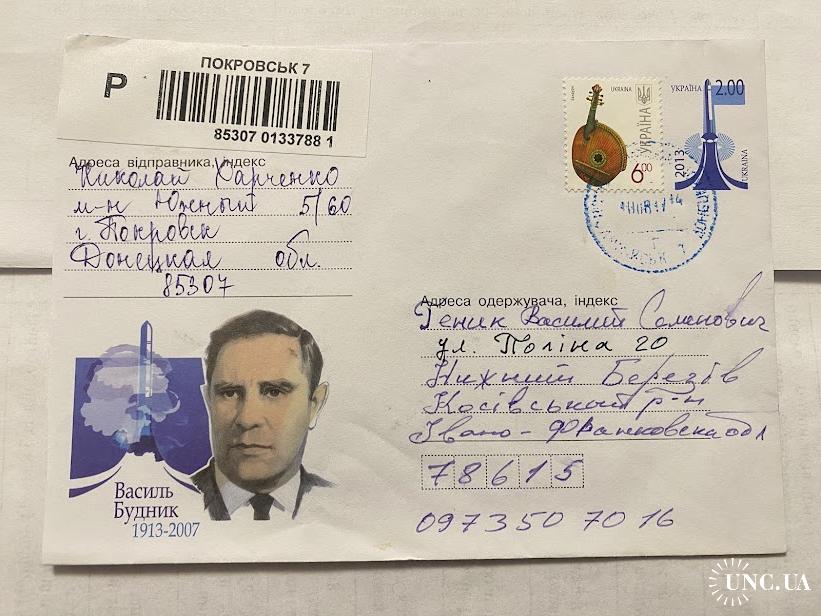 ПОКРОВСЬК 7
Р
85307 0133788 1
Адреса відправника, індекс
Николай Харченко
м-н Южный 5/60
г. Покровск
Донецкая обл.
85307
BANDURA
UKRAINA
УКРАЇНА
6.00
2013
УКРАЇНА 2.00
UKRAINE
Адреса одержувача, індекс
Геник Василий Семенович
ул. Поліна 20
Нижний Березів
Косівський р-н
Івано-Франковска обл
78615
097 350 70 16
Василь
Будник
1913-2007
UNC.UA